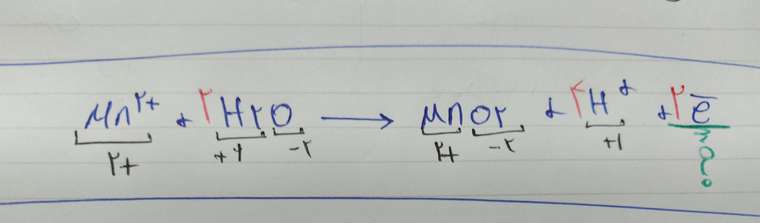 Mn²⁺ + ۲H۲O → MnO۲ + ۴H⁺ + ۲e⁻
۲+ +۱ -۲ ۴+ -۲ +۱ ?